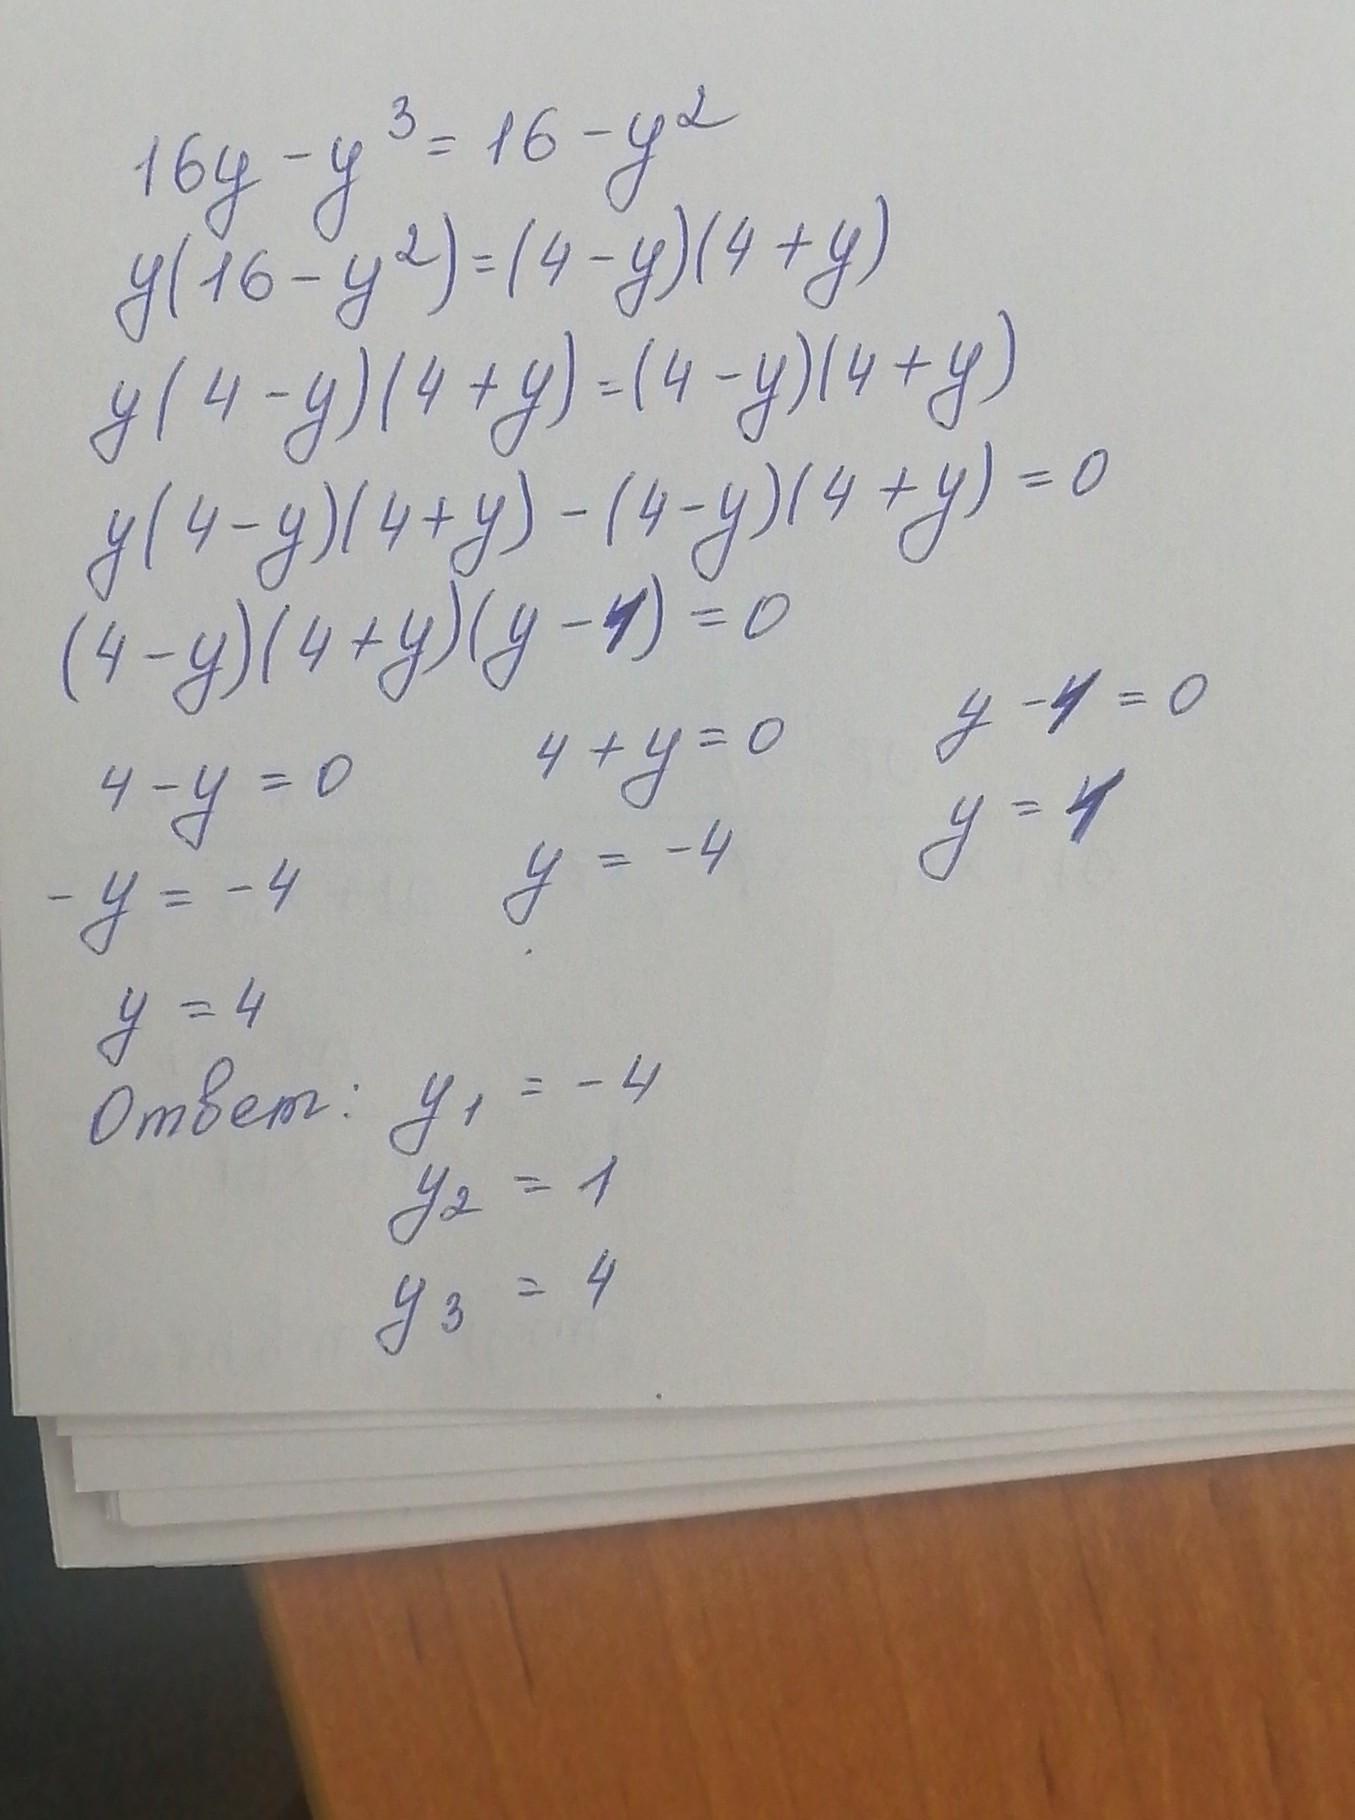 16y - y³ = 16 - y²
y(16 - y²) = (4 - y)(4 + y)
y(4 - y)(4 + y) = (4 - y)(4 + y)
y(4 - y)(4 + y) - (4 - y)(4 + y) = 0
(4 - y)(4 + y)(y - 1) = 0
4 - y = 0 4 + y = 0 y - 1 = 0
- y = -4 y = -4 y = 1
y = 4
Ответ: y₁ = -4
y₂ = 1
y₃ = 4